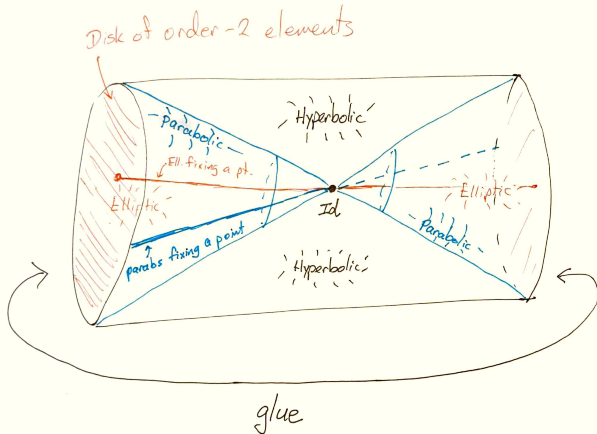 Disk of order-2 elements
Parabolic
Hyperbolic
Ell. fixing a pt.
Elliptic
Id
Elliptic
parabs fixing a point
Parabolic
Hyperbolic
glue